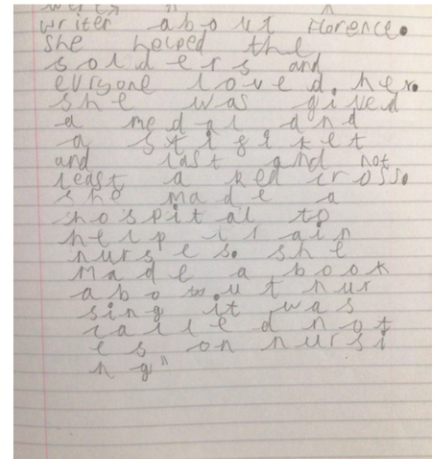 writer about Florence.
she helped the
solders and
evryone loved.her.
she was gived
a medal and
a stifiket
and last and not
least a Red cross.
she made a
hospital to
help train
nurses. she
made a book
about nur
sing it was
called not
es on nursi
ng"